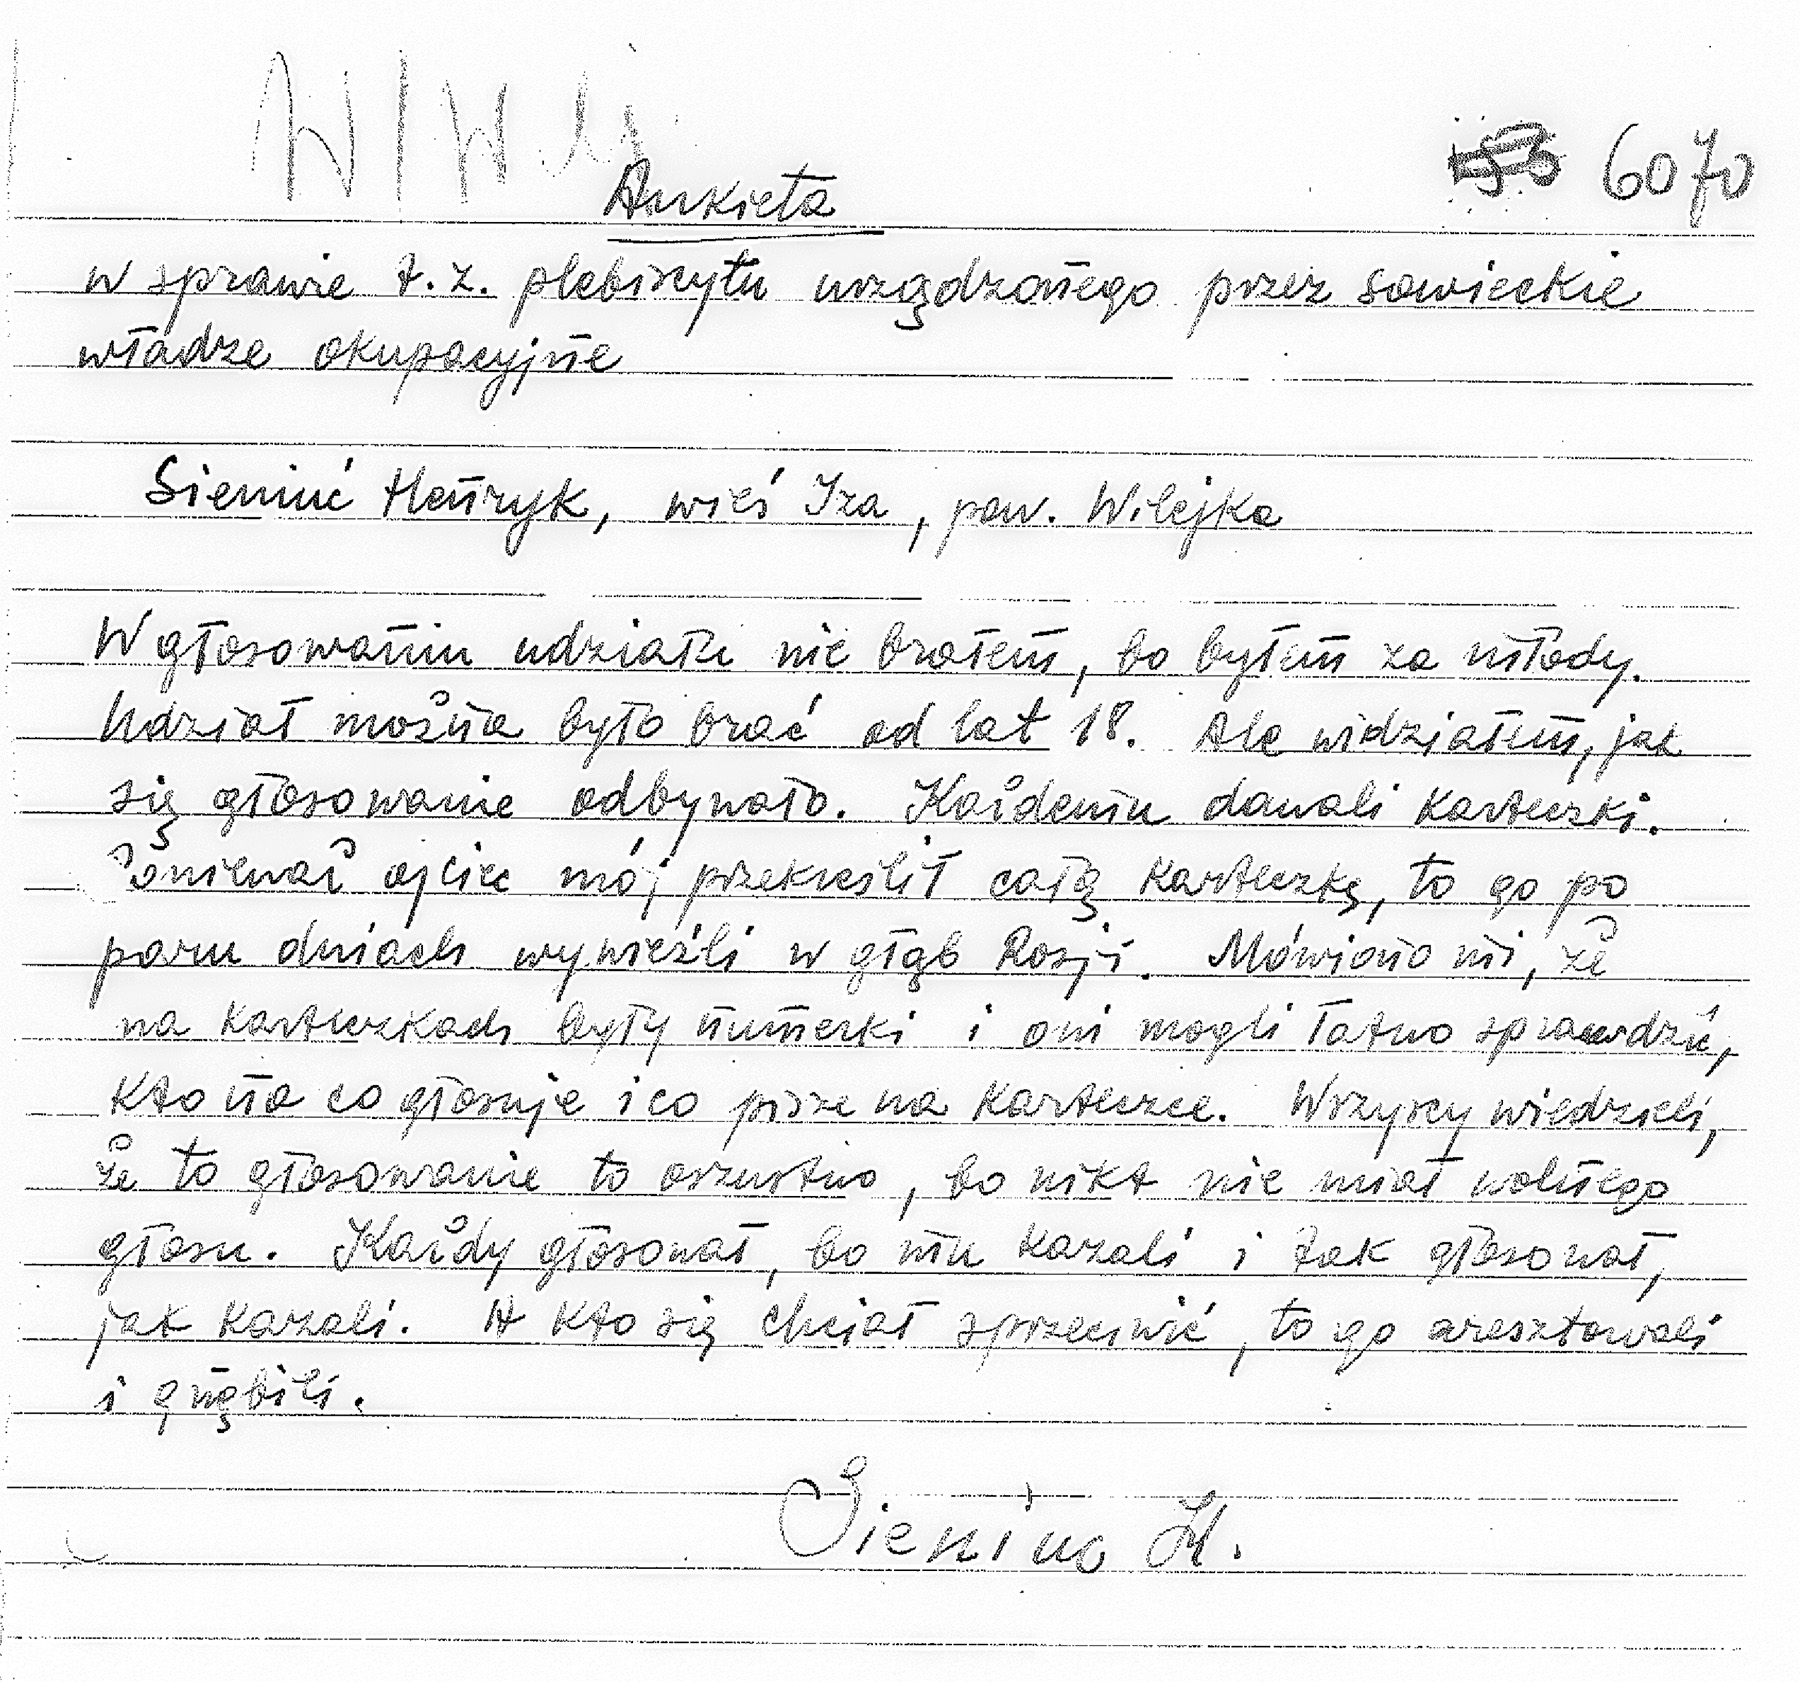 6070
Ankieta
w sprawie t.z. plebiscytu urządzonego przez sowieckie
władze okupacyjne
Sieniuć Henryk, wieś Iza, pow. Wilejka
W głosowaniu udziału nie brałem, bo byłem za młody.
Udział można było brać od lat 18. Ale widziałem, jak
się głosowanie odbywało. Każdemu dawali karteczki.
Ponieważ ojciec mój przekreślił całą karteczkę, to go po
paru dniach wywieźli w głąb Rosji. Mówiono mi, że
na karteczkach były numerki i oni mogli łatwo sprawdzić,
kto na co głosuje i co pisze na karteczce. Wszyscy wiedzieli,
że to głosowanie to oszustwo, bo nikt nie miał wolnego
głosu. Każdy głosował, bo mu kazali i tak głosował,
jak kazali. A kto się chciał sprzeciwić, to go aresztowali
i gnębili.
H.